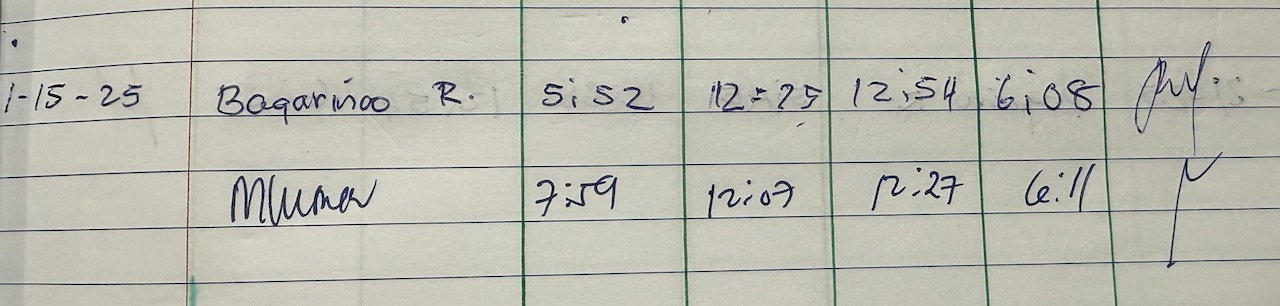 1-15-25 Bagarinao R. 5:52 12:25 12:54 6:08
7:59 12:07 12:27 6:11